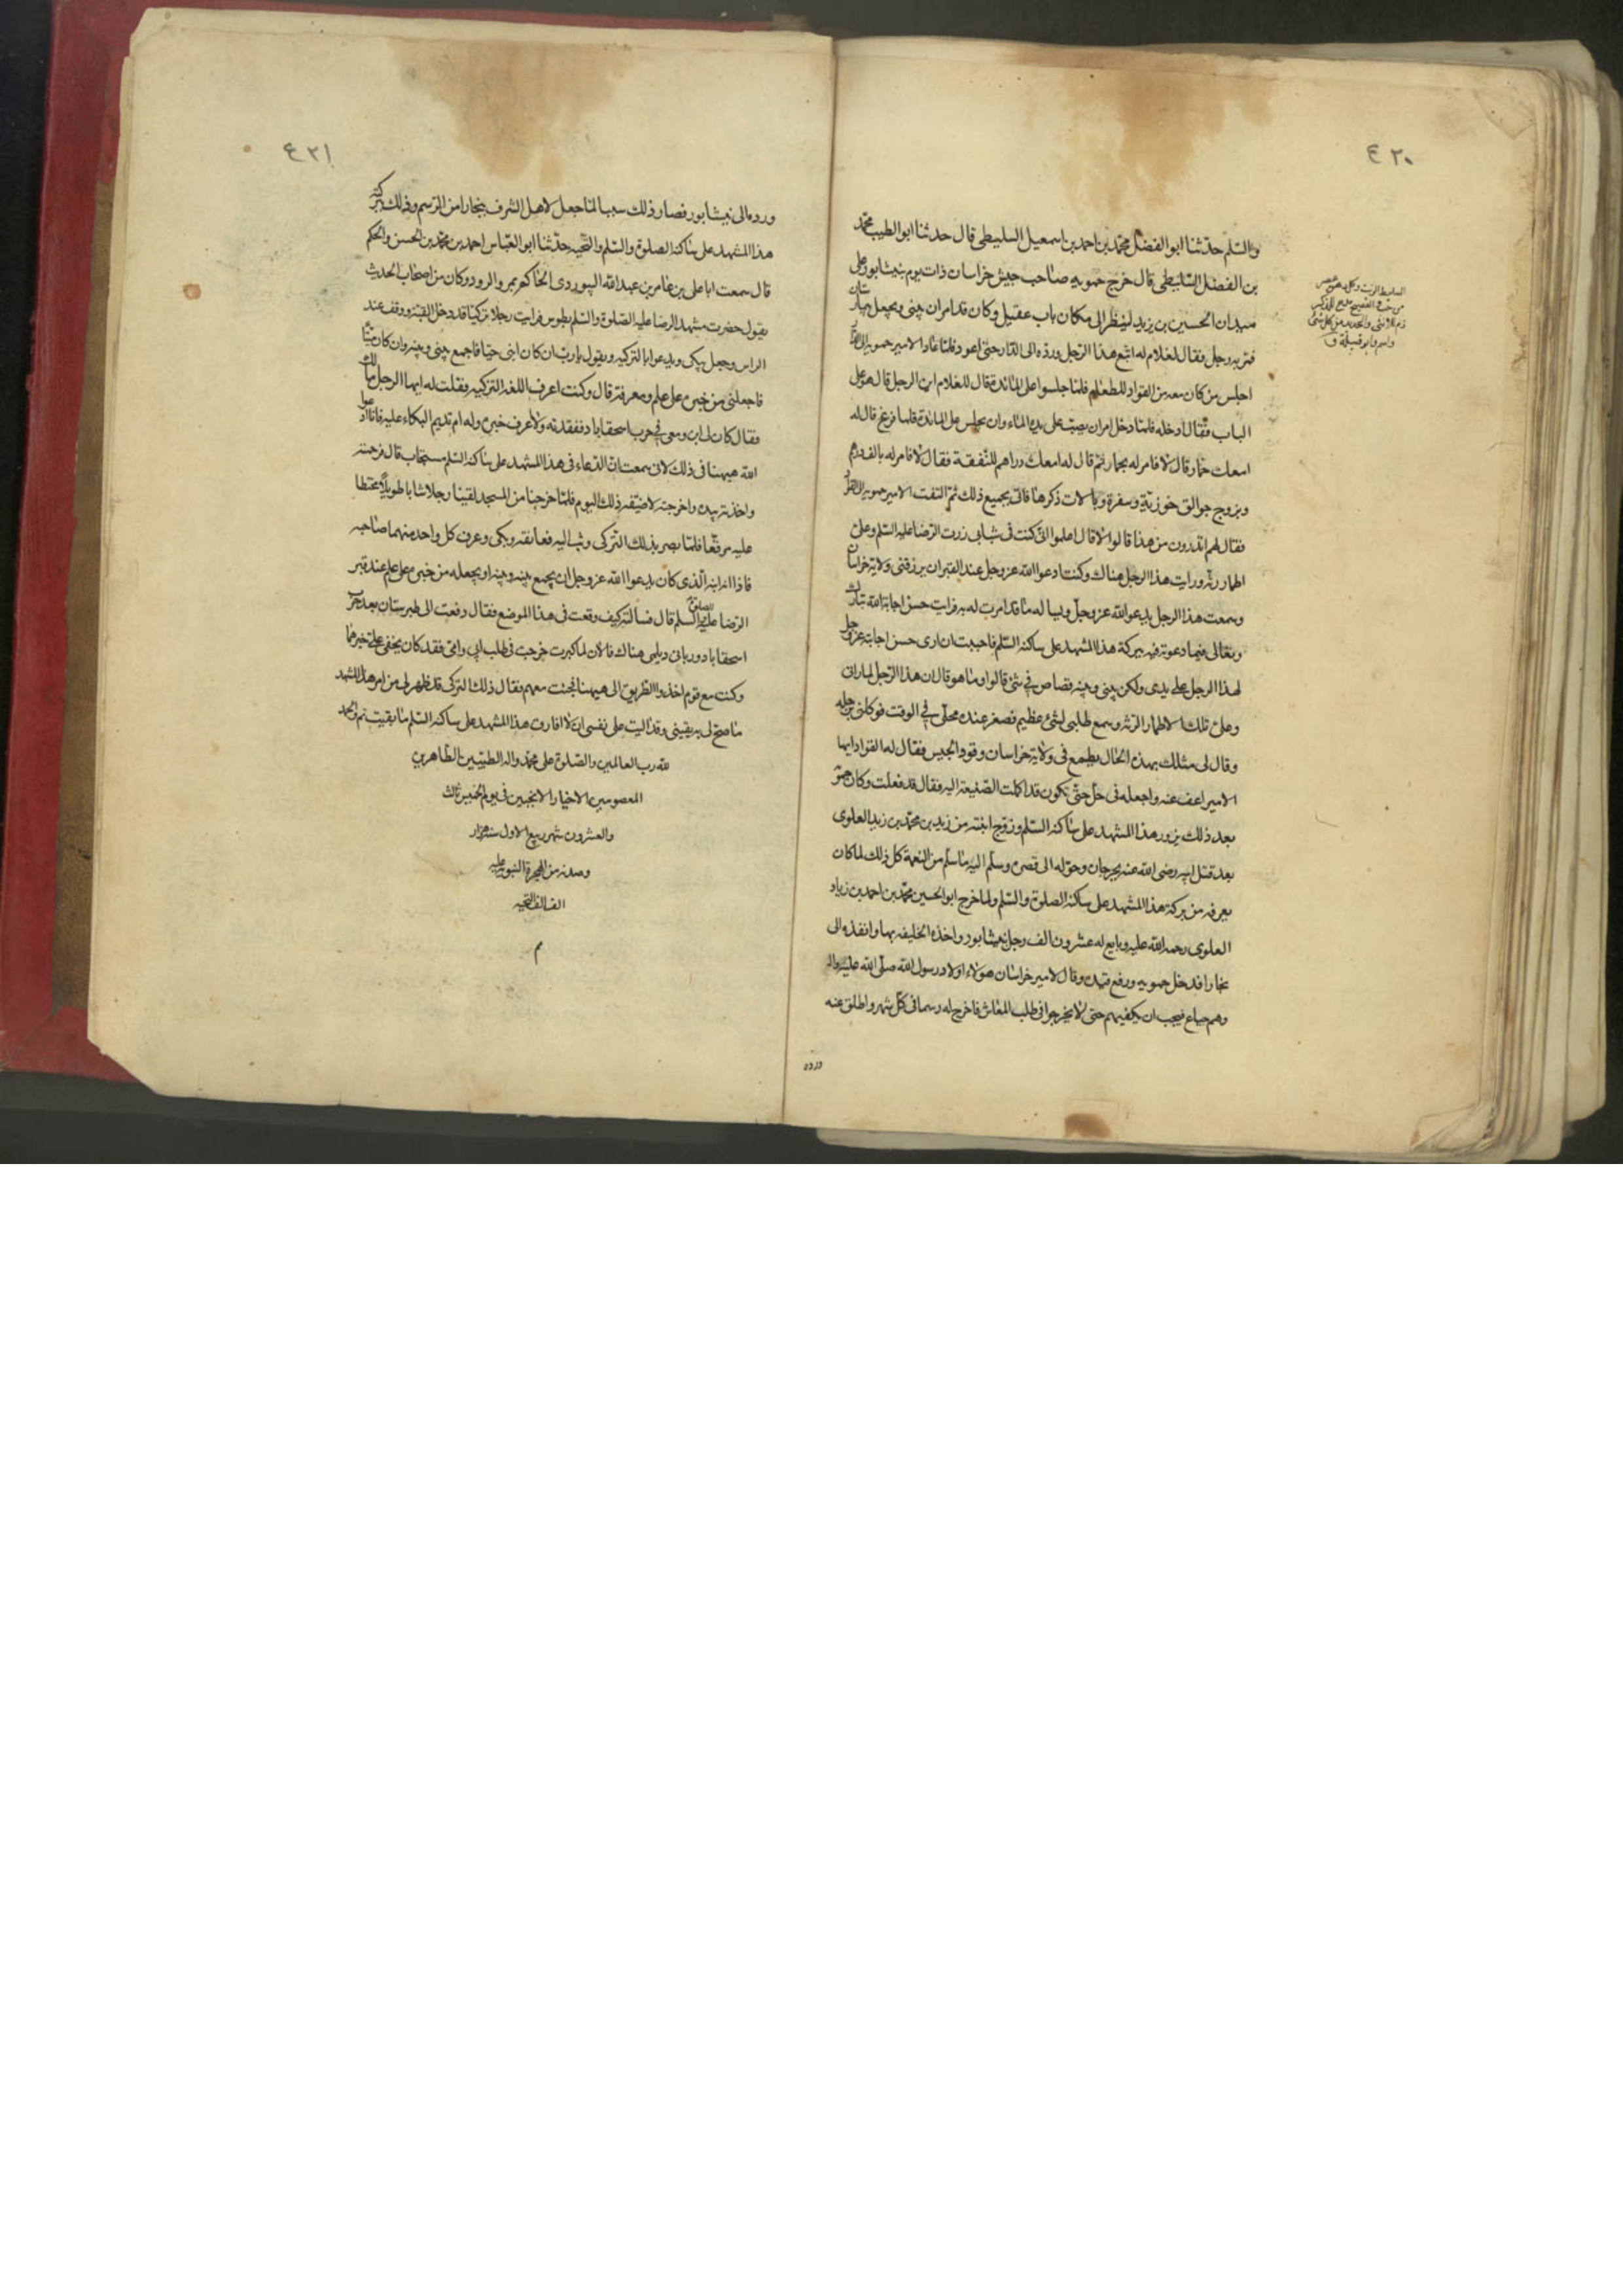 ٤٢٠
والسلم حدثنا ابو الفضل محمد بن احمد بن اسمعيل السليطى قال حدثنا ابو الطيب محمد
بن الفضل السليطى قال خرج حمويه صاحب جيش خراسان ذات يوم بنيشابور على
ميدان الحسين بن يزيد لينظر الى مكان باب عقيل وكان قد امر ان يبنى ويجعل بيمارستان
فمر به رجل فقال لغلام له اتبع هذا الرجل ورده الى الدار حتى اعود فلما عاد الامير حمويه الى الدار
اجلس من كان معه من القواد للطعام فلما جلسوا على المائدة قال للغلام اين الرجل قال هو على
الباب فقال ادخله فلما دخل امر ان يصب على يده الماء وان يجلس على المائدة فلما فرغ قال له
امعك حمار قال لا فامر له بحمار ثم قال له امعك دراهم للنفقة فقال لا فامر له بالف درهم
وبزوج جوالق خوزية وسفرة وبالات ذكرها فاتى بجميع ذلك ثم التفت الامير حمويه الى القواد
فقال لهم اتدرون من هذا قالوا لا قال اعلموا انى كنت فى شبابى زرت الرضا عليه السلم وعلى
اطمار رثة ورايت هذا الرجل هناك وكنت ادعوا الله عز وجل عند القبر ان يرزقنى ولاية خراسان
وسمعت هذا الرجل يدعو الله عز وجل ويساله ما قد امرت له به فرايت حسن اجابة الله تبارك
وتعالى فيما دعوته فيه ببركة هذا المشهد على ساكنه السلم فاحببت ان ارى حسن اجابته عز وجل
لهذا الرجل على يدى ولكن بينى وبينه قصاص فى شئ قالوا وما هو قال ان هذا الرجل لما رانى
وعلى تلك الاطمار الرثة وسمع طلبى لشئ عظيم فصغر عنده محلى فى الوقت فركلنى برجله
وقال لى مثلك بهذه الحال يطمع فى ولاية خراسان وقود الجيش فقال له القواد ايها
الامير اعف عنه واجعله فى حل حتى تكون قد اكملت الصنيعة اليه فقال قد فعلت وكان حمويه
بعد ذلك يزور هذا المشهد على ساكنه السلم وزوج ابنته من زيد بن محمد بن زيد العلوى
بعد قتل ابيه رضى الله عنه بجرجان وحوله الى قصره وسلم اليه ما سلم من النعمة كل ذلك لما كان
يعرفه من بركة هذا المشهد على ساكنه الصلوة والسلم ولما خرج ابو الحسين محمد بن احمد بن زياد
العلوى رحمه الله عليه وبايع له عشرون الف رجل بنيشابور واخذه الخليفه بها وانفذه الى
بخارا فدخل حمويه ورفع قيده وقال لامير خراسان هولاء اولاد رسول الله صلى الله عليه واله
وهم جياع فيجب ان يكفيهم حتى لا يخرجوا فى طلب المعاش فاخرج له رسما فى كل شهر واطلق عنه
ورده
٤٢١
ورده الى نيشابور فصار ذلك سببا لما جعل لاهل الشرف ببخارا من الرسم وذلك ببركة
هذا المشهد على ساكنه الصلوة والسلم والتحيه حدثنا ابو العباس احمد بن محمد بن الحسن والحكم
قال سمعت ابا على بن عامر بن عبد الله البيوردى الحاكم بمرو الرود وكان من اصحاب الحديث
يقول حضرت مشهد الرضا عليه الصلوة والسلم بطوس فرايت رجلا تركيا قد دخل القبة ووقف عند
الراس وجعل يبكى ويدعوا بالتركيه ويقول يارب ان كان ابنى حيا فاجمع بينى وبينه وان كان ميتا
فاجعلنى من خبره على علم ومعرفة قال وكنت اعرف اللغة التركيه فقلت له ايها الرجل مالك
فقال كان لى ابن ومعى فى حرب اسحقاباد ففقدته ولا اعرف خبره وله ام تديم البكاء عليه فانا ادعوا
الله هيهنا فى ذلك لانى سمعت ان الدعاء فى هذا المشهد على ساكنه السلم مستجاب قال فرحمته
واخذته بيده واخرجته لاضيفه ذلك اليوم فلما خرجنا من المسجد لقينا رجلا شابا طويلا مختطا
عليه مرقعا فلما بصر بذلك التركى وثب اليه فعانقه وبكى وعرف كل واحد منهما صاحبه
فاذا انه ابنه الذى كان يدعوا الله عز وجل ان يجمع بينه وبينه او يجعله من خبره على علم عند قبر
الرضا عليه الصلوة السلم قال فسالته كيف وقعت فى هذا الموضع فقال وقعت الى طبرستان بعد حرب
اسحقاباد وربانى ديلمى هناك فالان لما كبرت خرجت فى طلب ابى وامى فقد كان يخفى على خبرهما
وكنت مع قوم اخذوا الطريق الى هيهنا فجئت معهم فقال ذلك التركى قد ظهر لى من امر هذا المشهد
ما صح لى به يقينى وقد اليت على نفسى ان لا افارق هذا المشهد على ساكنه السلم ما بقيت تم والحمد
لله رب العالمين والصلوة على محمد واله الطيبين الطاهرين
المعصومين الاخيار الانجبين فى يوم الخميس ثالث
والعشرون شهر ربيع الاول سنه هزار
وصد من الهجرة النبويه عليه
الف الف التحيه
م